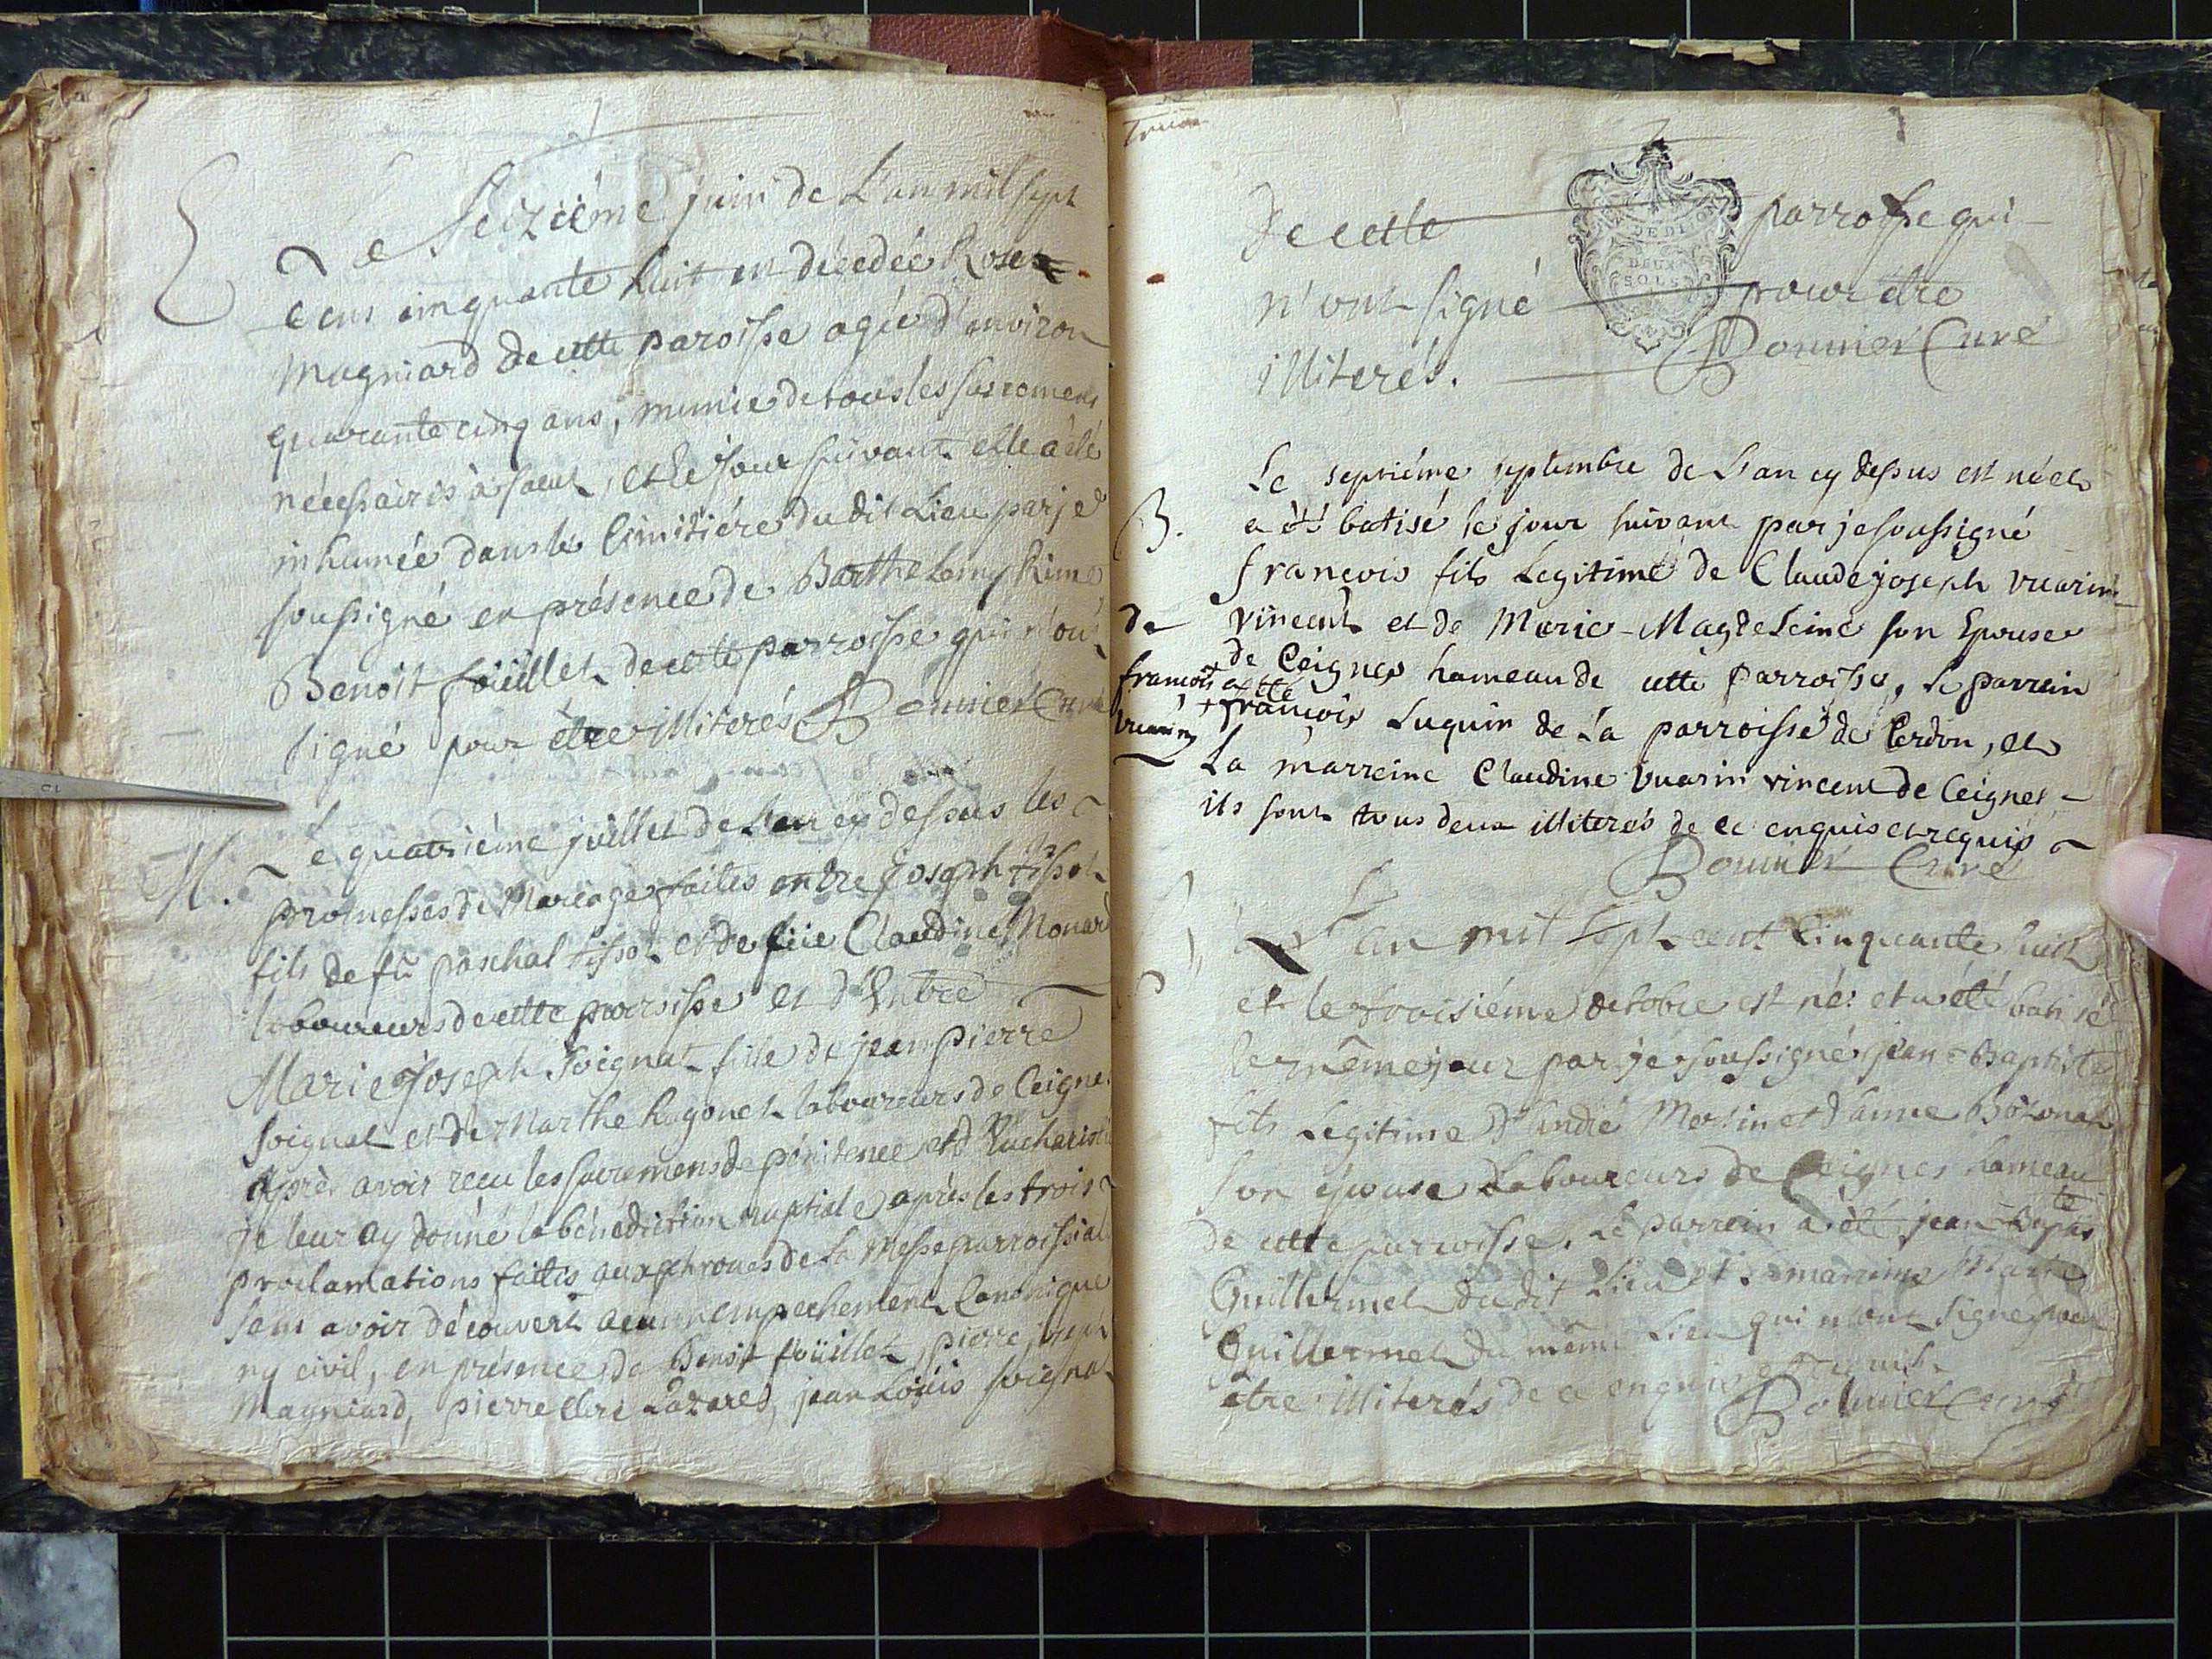 E
Le Seizième juin de L'an mil sept
cens cinquante huit est décedée Rose
Magniard de cette paroisse agée d'environ
quarante cinq ans, munie de tous les sacremens
nécessairis à salut, et le jour suivant elle a été
inhumée dans le Cimitiére du dit Lieu par je
soussigné en présence de Barthelemy Rime
Benoit foüillet de cette parroisse qui n'ont
signé pour être illiterés Bonnier Curé
M. Le quatriéme juillet de L'an cy dessus les
promesses de Mariage faites entre Joseph tissot
fils de fû paschal tissot et de füe Claudine Monard
laboureurs de cette parroisse et d'Entre
Marie Joseph Soignat fille de jean pierre
soignat et de Marthe hugonet laboureurs de Ceignes
Après avoir recu les sacremens de pénitence et d'Eucharistie
je leur ay donné la bénédiction nuptiale après les trois
proclamations faittes aux prones de La Messe parroissial
sans avoir découvert aucun empechement Canonique
ny civil, en présence de Benoit foüillet, pierre
Magniard, pierre Lazares, jean Loüis soignat
de cette parroisse qui
DE DI
DEUX
SOLS
n'ont signé pour être
illiterés. Bonnier Curé
B.
Le septiéme septembre de L'an cy dessus est né et
a été batisé le jour suivant par je soussigné
françois fils Legitime de Claude joseph vuarin
vincent et de Marie-Magdeleine son Epouse
de Ceignes hameau de cette parroisse, le parrein
a été
+ françois Luquin de La parroisse de Cerdon, et
La marreine Claudine vuarin vincent de Ceignes
ils sont tous deux illiterés de ce enquis et requis
Bonnier Curé
de
francois
vuarin
L'an mil sept cent Cinquante huit
et le troisiéme octobre est né et a été batisé
le même jour par je soussigné jean-Baptiste
fils Legitime d'andré Merlin et d'anne
son épouse Laboureurs de Ceignes hameau
de cette parroisse. Le parrein a été jean Baptiste
Guillermet du dit Lieu et la marreine Marie
Guillermet du même Lieu qui n'ont signé pour
être illiterés de ce enquis et requis
Bonnier Curé